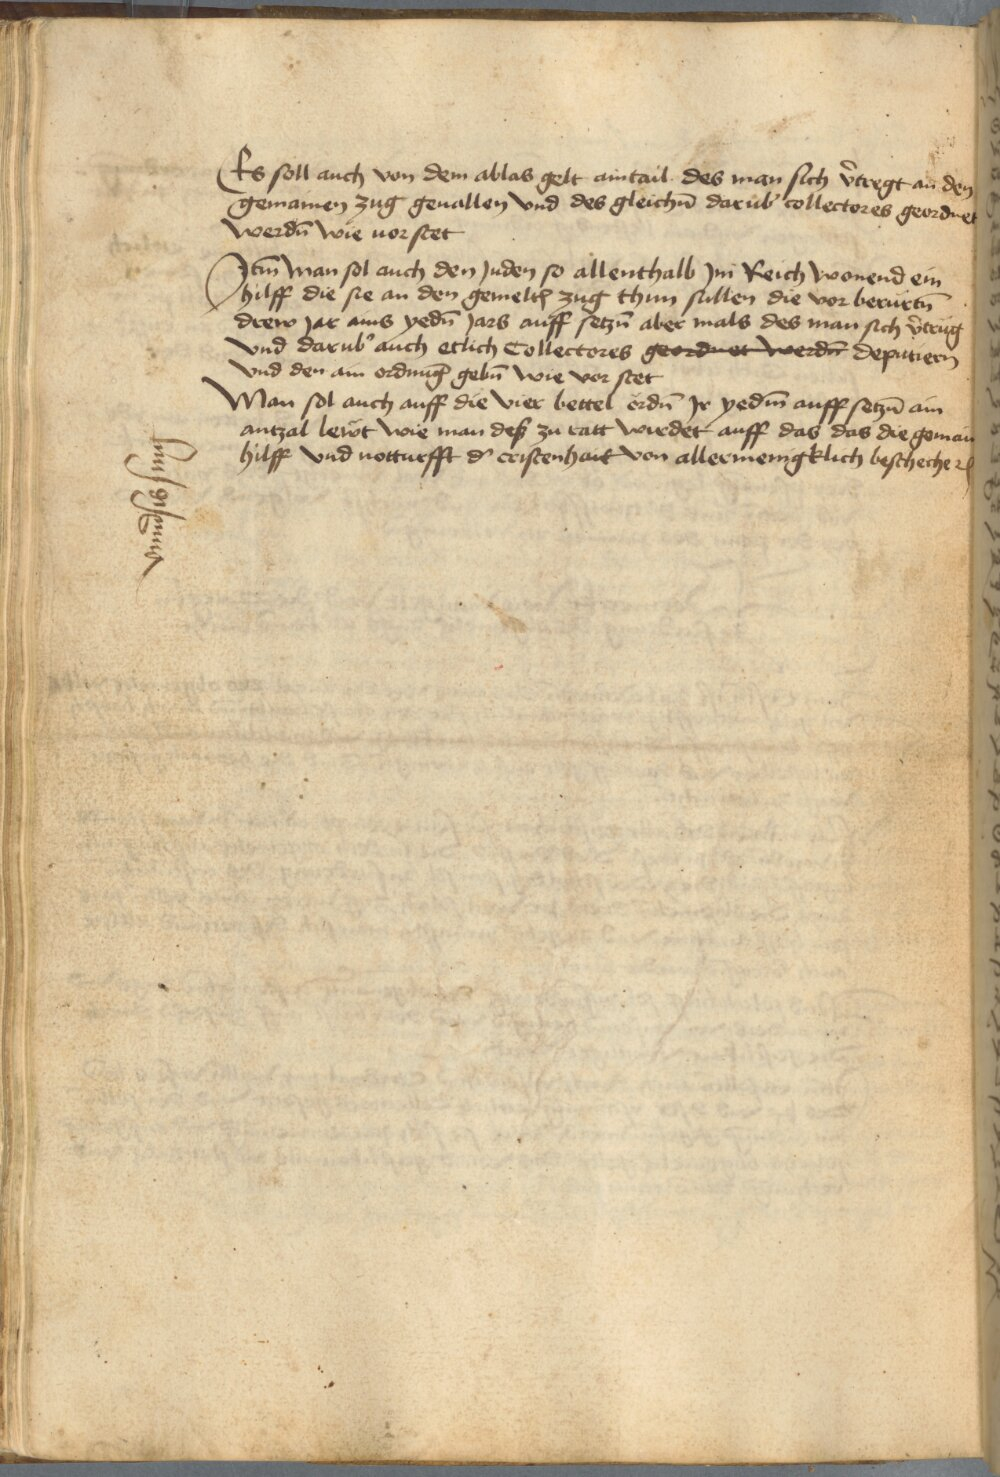 Es soll auch von dem ablas gelt aintail des man sich v̄tregt an den
gemainen zug geuallen vnd des gleichn̄ darüb' collectores geordnet
werdn̄ wie vor stet
Itm̄ man sol auch den Juden so allenthalb Jm Reich wonend ein
hilff die sie an den gemelt zug thun sullen die vor berürtn̄
drew Jar ains yedn̄ Jars auff setzn̄ aber mals des man sich v̄trüg
vnd darub' auch etlich Collectores geordnet werdn̄ deputiern
vnd den ain ordnug gebn̄ wie vor stet
Man sol auch auff die vier bettel ördn̄ Jr yedm̄ auff setzn̄ ain
antzal lewt wie man deß zu ratt wirdet auff das das die gemain
hilff vnd notturfft d' cristenhait von allermenigklich beschehe